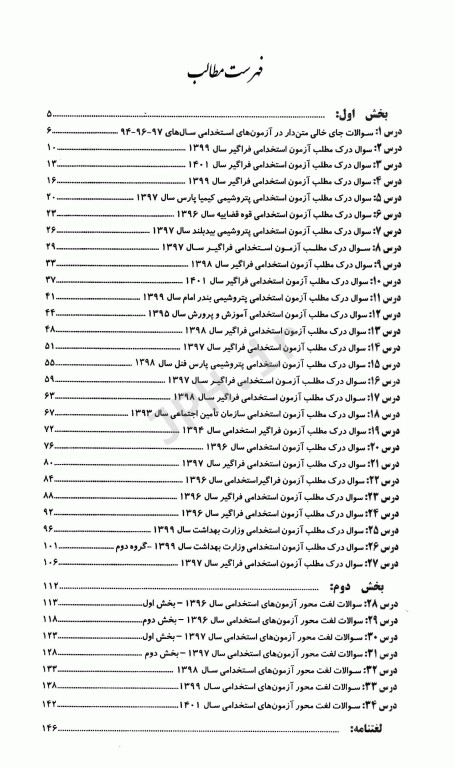 فهرست مطالب
بخش اول: ۵
درس ۱: سوالات جای خالی متن‌دار در آزمون‌های استخدامی سال‌های ۹۷-۹۶-۹۴ ۶
درس ۲: سوال درک مطلب آزمون استخدامی فراگیر سال ۱۳۹۹ ۱۰
درس ۳: سوال درک مطلب آزمون استخدامی فراگیر سال ۱۴۰۱ ۱۳
درس ۴: سوال درک مطلب آزمون استخدامی فراگیر سال ۱۳۹۹ ۱۶
درس ۵: سوال درک مطلب آزمون استخدامی پتروشیمی کیمیا پارس سال ۱۳۹۷ ۲۰
درس ۶: سوال درک مطلب آزمون استخدامی قوه قضاییه سال ۱۳۹۶ ۲۳
درس ۷: سوال درک مطلب آزمون استخدامی پتروشیمی بیدبلند سال ۱۳۹۷ ۲۶
درس ۸: سوال درک مطلب آزمون استخدامی فراگیر سال ۱۳۹۷ ۲۹
درس ۹: سوال درک مطلب آزمون استخدامی فراگیر سال ۱۳۹۸ ۳۳
درس ۱۰: سوال درک مطلب آزمون استخدامی فراگیر سال ۱۴۰۱ ۳۷
درس ۱۱: سوال درک مطلب آزمون استخدامی پتروشیمی بندر امام سال ۱۳۹۹ ۴۱
درس ۱۲: سوال درک مطلب آزمون استخدامی آموزش و پرورش سال ۱۳۹۵ ۴۴
درس ۱۳: سوال درک مطلب آزمون استخدامی فراگیر سال ۱۳۹۸ ۴۸
درس ۱۴: سوال درک مطلب آزمون استخدامی فراگیر سال ۱۳۹۷ ۵۱
درس ۱۵: سوال درک مطلب آزمون استخدامی پتروشیمی پارس فنل سال ۱۳۹۸ ۵۵
درس ۱۶: سوال درک مطلب آزمون استخدامی فراگیر سال ۱۳۹۷ ۵۹
درس ۱۷: سوال درک مطلب آزمون استخدامی فراگیر سال ۱۳۹۸ ۶۳
درس ۱۸: سوال درک مطلب آزمون استخدامی سازمان تأمین اجتماعی سال ۱۳۹۳ ۶۷
درس ۱۹: سوال درک مطلب آزمون فراگیر استخدامی سال ۱۳۹۴ ۷۲
درس ۲۰: سوال درک مطلب آزمون استخدامی سال ۱۳۹۶ ۷۶
درس ۲۱: سوال درک مطلب آزمون استخدامی فراگیر سال ۱۳۹۷ ۸۰
درس ۲۲: سوال درک مطلب آزمون فراگیراستخدامی سال ۱۳۹۶ ۸۴
درس ۲۳: سوال درک مطلب آزمون استخدامی فراگیر سال ۱۳۹۶ ۸۸
درس ۲۴: سوال درک مطلب آزمون استخدامی فراگیر سال ۱۳۹۶ ۹۲
درس ۲۵: سوال درک مطلب آزمون استخدامی وزارت بهداشت سال ۱۳۹۹ ۹۶
درس ۲۶: سوال درک مطلب آزمون استخدامی وزارت بهداشت سال ۱۳۹۹ -گروه دوم ۱۰۱
درس ۲۷: سوال درک مطلب آزمون استخدامی فراگیر سال ۱۳۹۷ ۱۰۶
بخش دوم: ۱۱۲
درس ۲۸: سوالات لغت محور آزمون‌های استخدامی سال ۱۳۹۶ – بخش اول ۱۱۳
درس ۲۹: سوالات لغت محور آزمون‌های استخدامی سال ۱۳۹۶ – بخش دوم ۱۱۸
درس ۳۰: سوالات لغت محور آزمون‌های استخدامی سال ۱۳۹۷ – بخش اول ۱۲۳
درس ۳۱: سوالات لغت محور آزمون‌های استخدامی سال ۱۳۹۷ – بخش دوم ۱۲۸
درس ۳۲: سوالات لغت محور آزمون‌های استخدامی سال ۱۳۹۸ ۱۳۳
درس ۳۳: سوالات لغت محور آزمون‌های استخدامی سال ۱۳۹۹ ۱۳۸
درس ۳۴: سوالات لغت محور آزمون‌های استخدامی سال ۱۴۰۱ ۱۴۲
لغتنامه: ۱۴۶